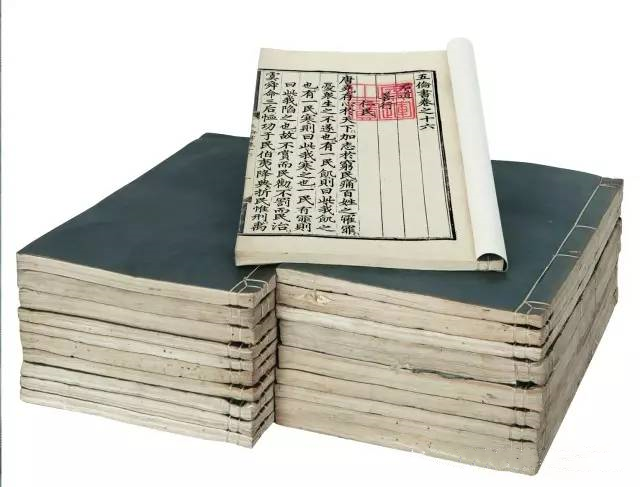 五倫書卷之十六
君道
善行
仁民
唐堯存心於天下加志於窮民痛百姓之罹罪
憂衆生之不遂也有一民飢則曰此我飢之
也有一民寒則曰此我寒之也一民有罪則
曰此我陷之也故不賞而民勸不罰而民治
虞舜命三后恤功于民伯夷降典折民惟刑禹